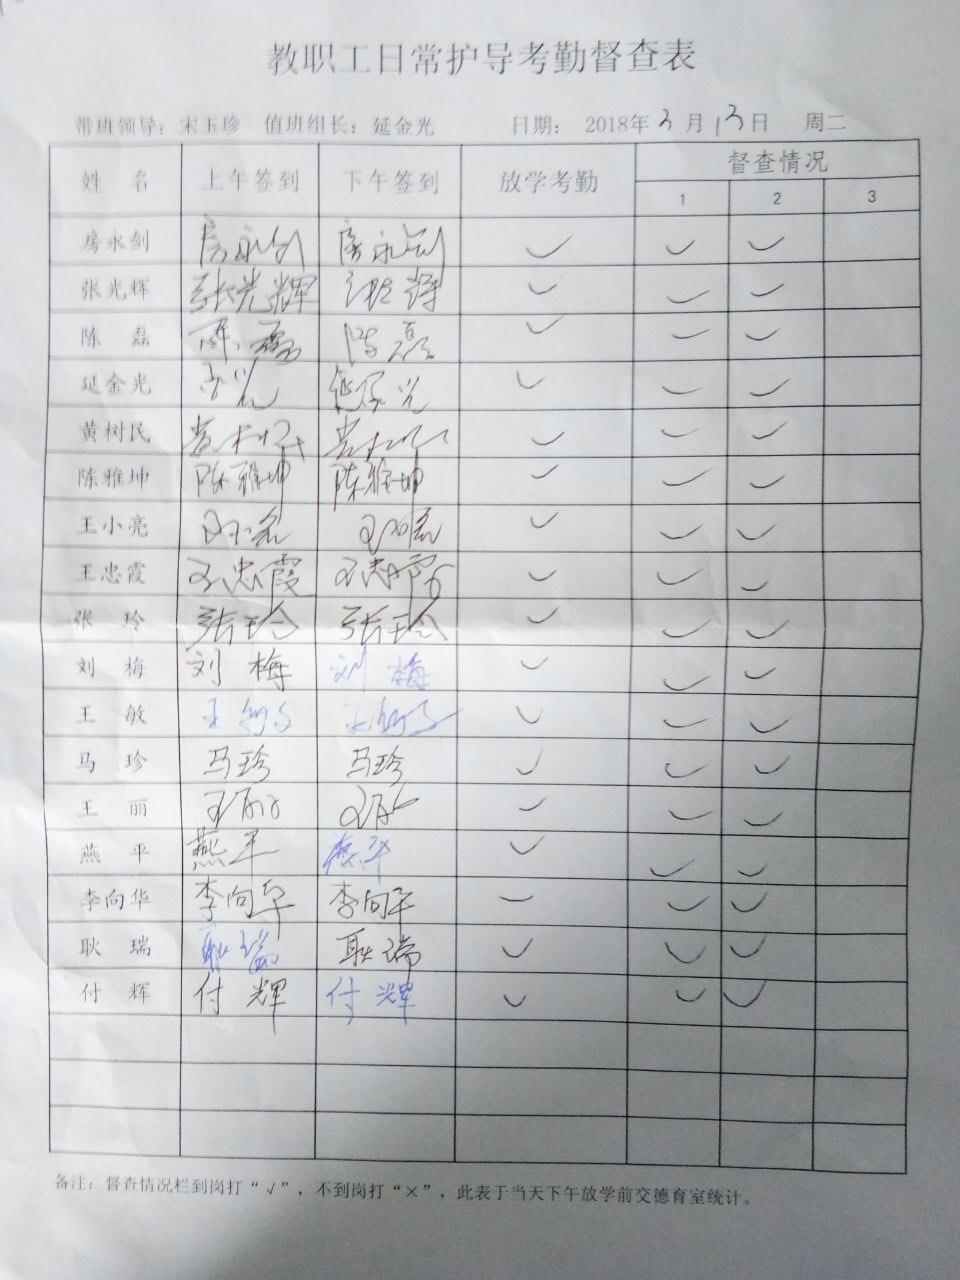 教职工日常护导考勤督查表
带班领导：宋玉珍 值班组长：延金光 日期： 2018年3月13日 周二
姓 名 上午签到 下午签到 放学考勤 督查情况
1 2 3
房永剑 房永剑 房永剑 ✓ ✓ ✓
张光辉 张光辉 ✓ ✓ ✓
陈 磊 陈磊 ✓ ✓ ✓
延金光 延金光 ✓ ✓ ✓
黄树民 ✓ ✓ ✓
陈雅坤 陈雅坤 陈雅坤 ✓ ✓ ✓
王小亮 ✓ ✓ ✓
王忠霞 王忠霞 王忠霞 ✓ ✓ ✓
张 玲 张玲 张玲 ✓ ✓ ✓
刘 梅 刘 梅 刘 梅 ✓ ✓ ✓
王 敏 王敏 王敏 ✓ ✓ ✓
马 珍 马珍 马珍 ✓ ✓ ✓
王 丽 王丽 王丽 ✓ ✓ ✓
燕 平 燕平 燕平 ✓ ✓ ✓
李向华 李向华 李向华 ✓ ✓ ✓
耿 瑞 耿瑞 耿瑞 ✓ ✓ ✓
付 辉 付 辉 付 辉 ✓ ✓ ✓
备注：督查情况栏到岗打“√”，不到岗打“×”，此表于当天下午放学前交德育室统计。